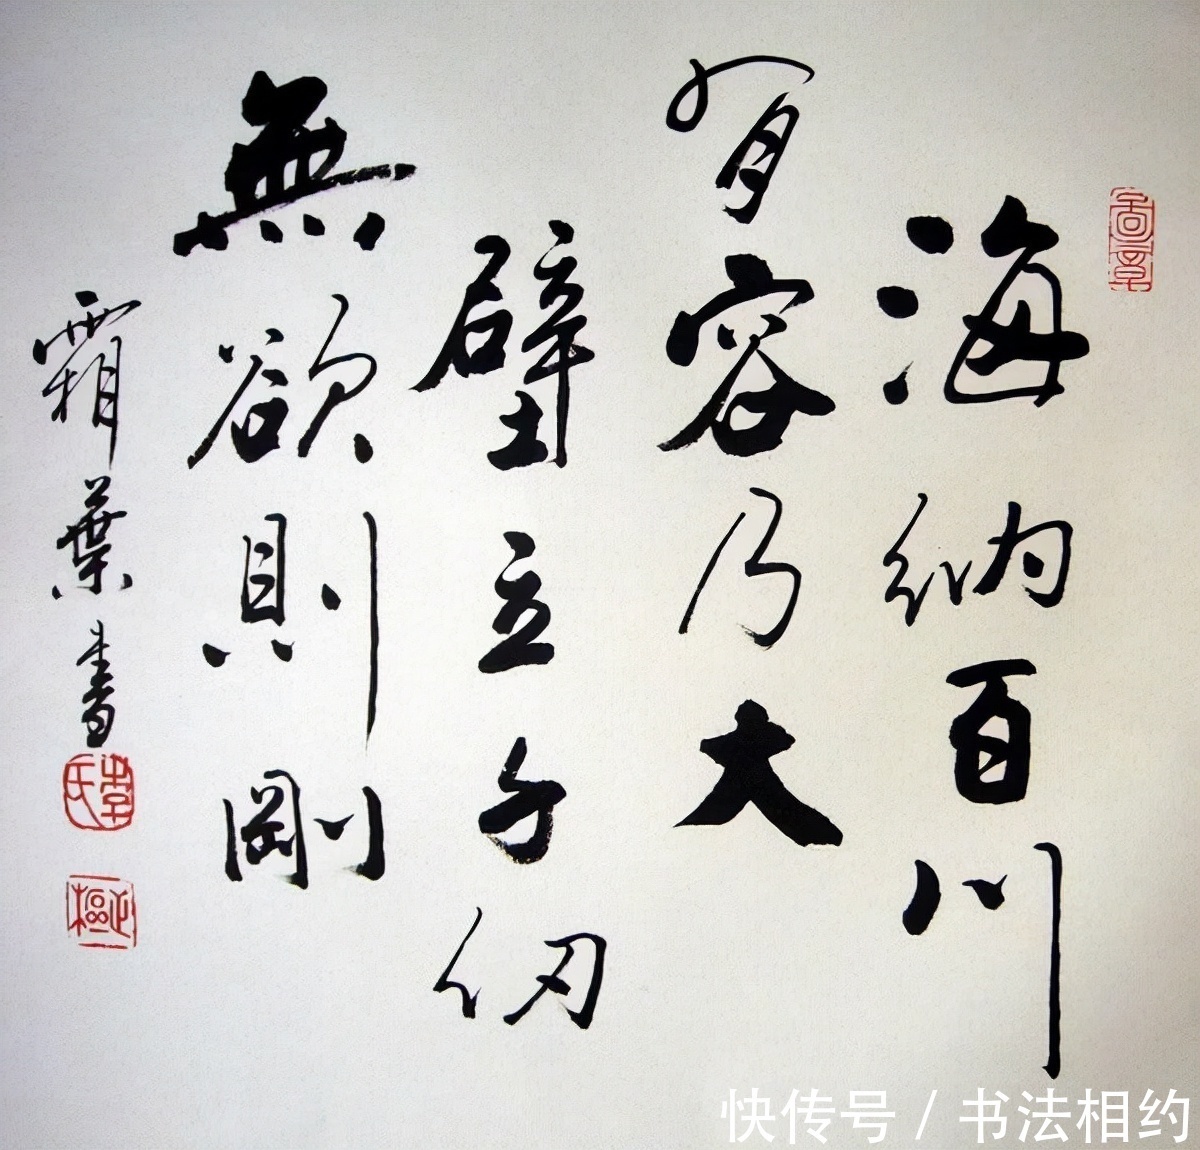 海納百川
有容乃大
壁立千仞
無欲則剛
霜葉書
李氏
快传号 / 书法相约